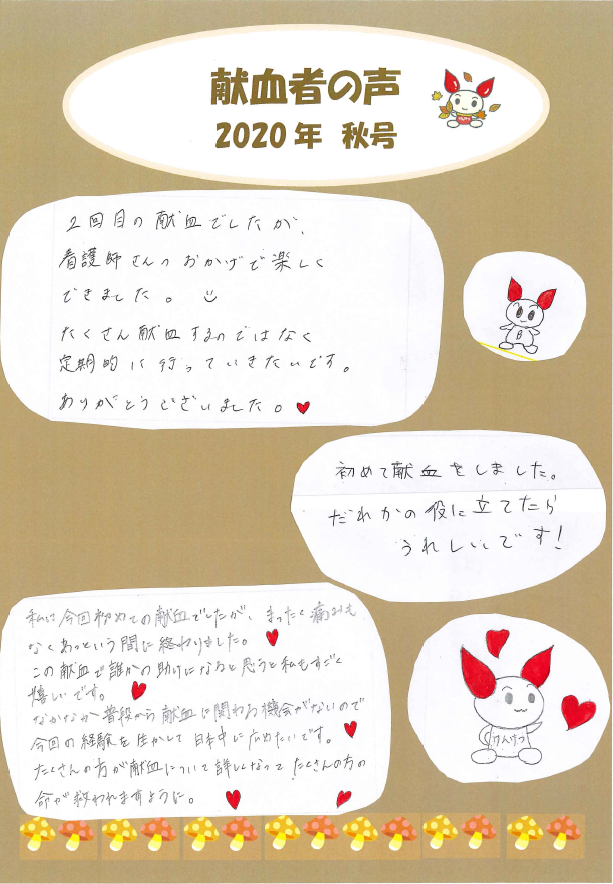 献血者の声
2020年 秋号
2回目の献血でしたが、
看護師さんのおかげで楽しく
できました。
たくさん献血するのではなく
定期的に行っていきたいです。
ありがとうございました。
B
初めて献血をしました。
だれかの役に立てたら
うれしいです!
私は今回初めての献血でしたが、まったく痛みも
なくあっという間に終わりました。
この献血で誰かの助けになると思うと私もすごく
嬉しいです。
なかなか普段から献血に関わる機会がないので
今回の経験を生かして日本中に広めたいです。
たくさんの方が献血について詳しくなって、たくさんの方の
命が救われますように。
けんけつ